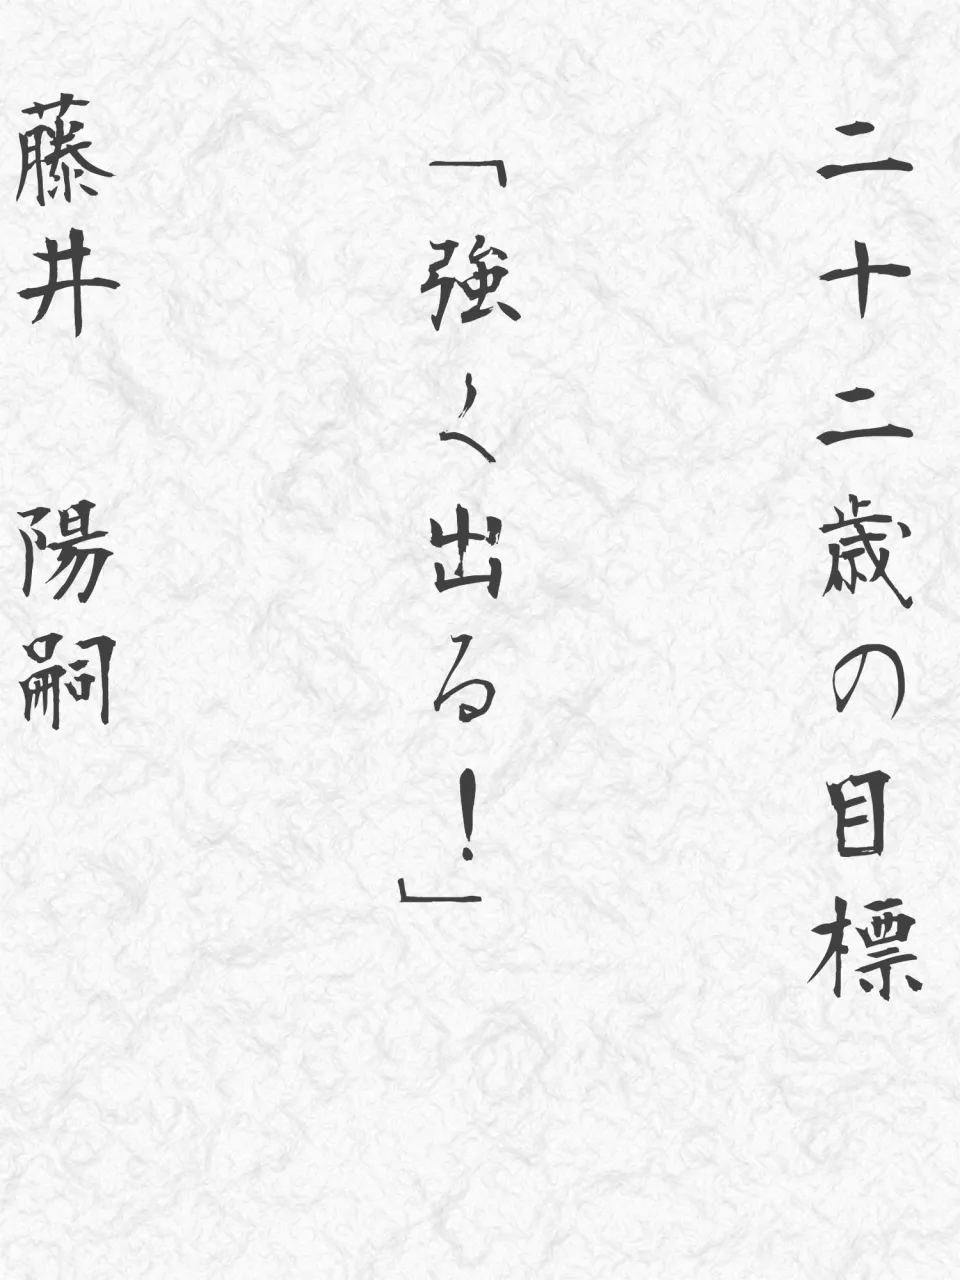 二十二歳の目標
「強く出る！」
藤井　陽嗣